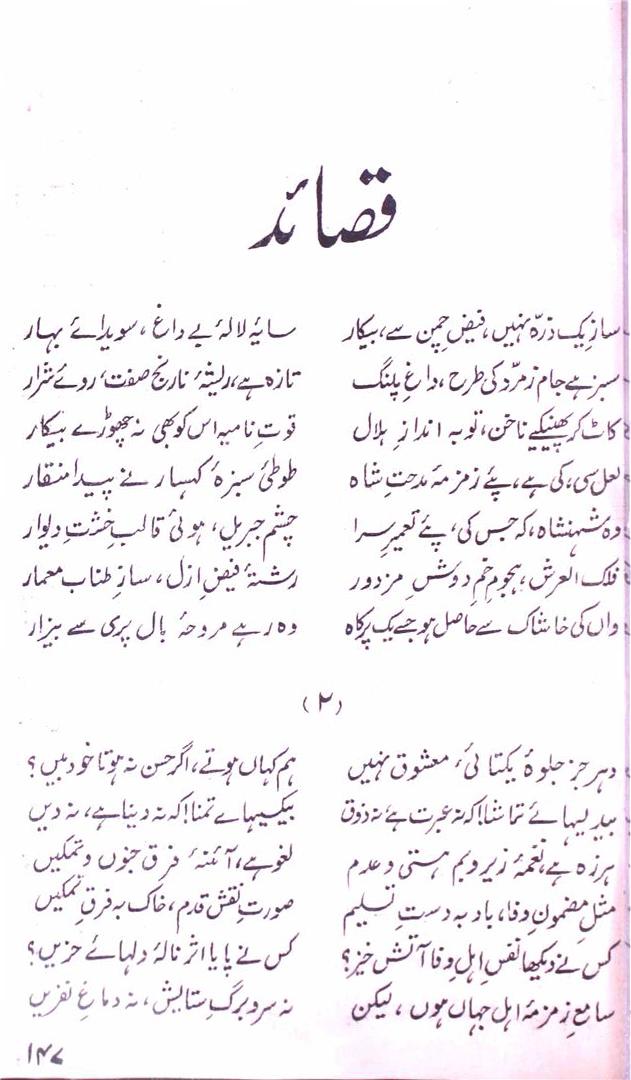 قصائد
سازِ یک ذرّہ نہیں، فیضِ چمن سے، بیکار سایۂ لالۂ بے داغ، سویدائے بہار
سبز ہے جامِ زمرّد کی طرح، داغِ پلنگ تازہ ہے، ریشۂ نارنج صفت، روئے شرار
کاٹ کر پھینکیے ناخن، تو بہ اندازِ ہلال قوتِ نامیہ اس کو بھی نہ چھوڑے بیکار
لعل سی، کی ہے، پئے زمزمۂ مدحتِ شاہ طوطیِ سبزۂ کہسار نے پیدا منقار
وہ شہنشاہ، کہ جس کی، پئے تعمیرِ سرا چشمِ جبریل، ہوئی قالبِ خشتِ دیوار
فلک العرش، ہجومِ خمِ دوشِ مزدور رشتۂ فیضِ ازل، سازِ طنابِ معمار
واں کی خاشاک سے حاصل ہو جسے یک پرکاہ وہ رہے مروحۂ بالِ پری سے بیزار
(۲)
دہر جز جلوۂ یکتائیِ معشوق نہیں ہم کہاں ہوتے، اگر حسن نہ ہوتا خود بیں؟
بیدلیہائے تماشا! کہ نہ عبرت ہے نہ ذوق بیکسیہاے تمنا! کہ نہ دنیا ہے، نہ دیں
ہرزہ ہے، نغمۂ زیر و بمِ ہستی و عدم لغو ہے، آئنۂ فرقِ جنوں و تمکیں
مثلِ مضمونِ وفا، باد بہ دستِ تسلیم صورتِ نقشِ قدم، خاک بہ فرقِ تمکیں
کس نے دیکھا نفسِ اہلِ وفا آتش خیز؟ کس نے پایا اثرِ نالۂ دلہائے حزیں؟
سامعِ زمزمۂ اہلِ جہاں ہوں، لیکن نہ سر و برگِ ستایش، نہ دماغِ نفریں
۱۴۷